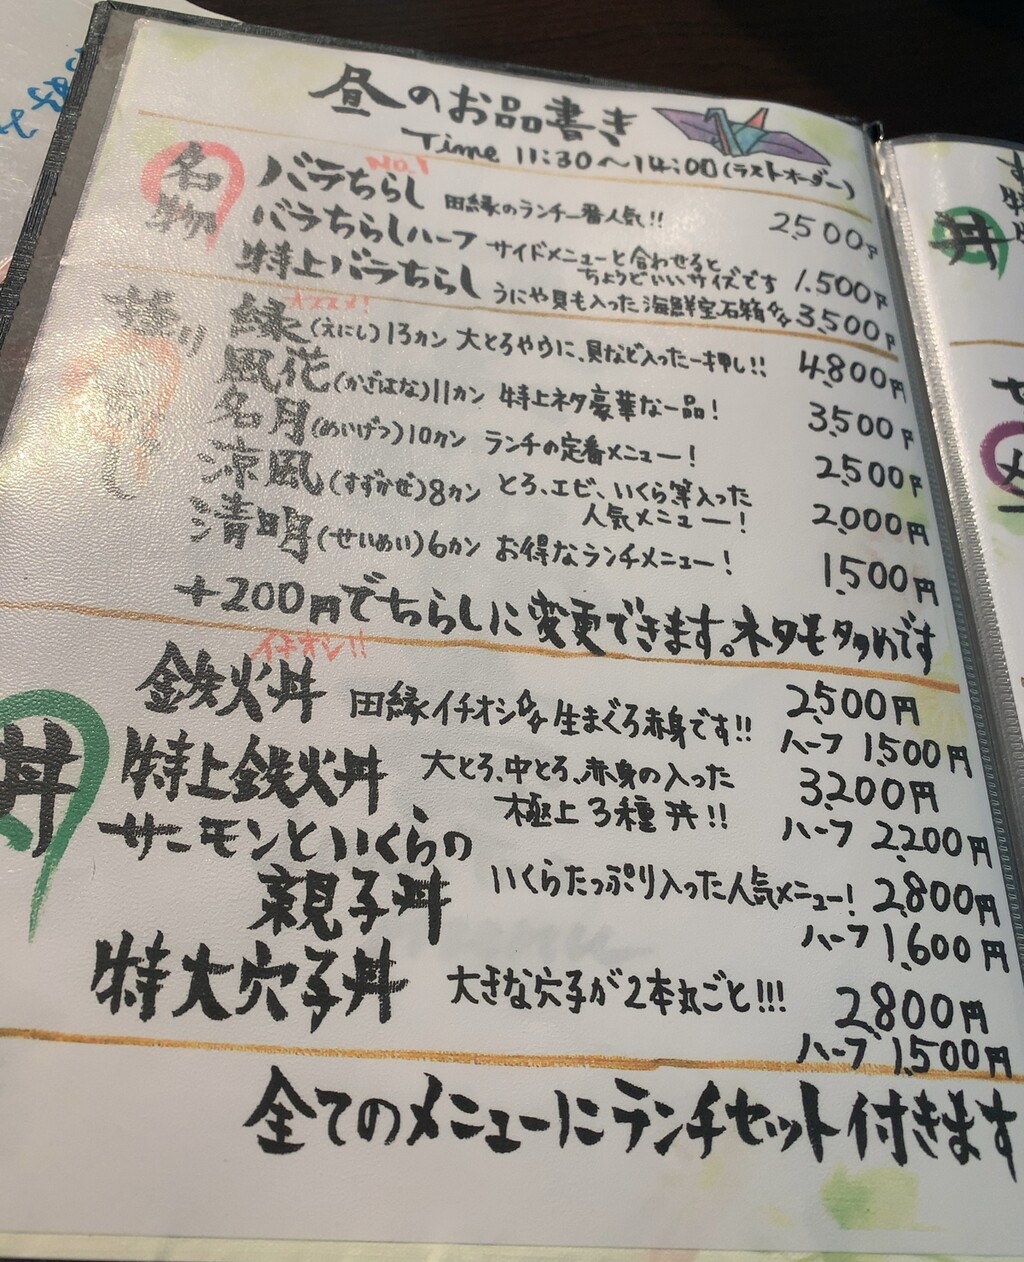 昼のお品書き
Time 11:30～14:00(ラストオーダー)
名物
No.1
バラちらし 田縁のランチ一番人気!! 2,500円
バラちらしハーフ サイドメニューと合わせると
ちょうどいいサイズです 1,500円
特上バラちらし うにや貝も入った海鮮宝石箱☆☆ 3,500円
握り
オススメ!
縁(えにし)13カン 大とろやうに、貝など入った一押し!! 4,800円
風花(かざはな)11カン 特上ネタ豪華な一品! 3,500円
名月(めいげつ)10カン ランチの定番メニュー! 2,500円
涼風(すずかぜ)8カン とろ、エビ、いくら等入った
人気メニュー! 2,000円
清明(せいめい)6カン お得なランチメニュー! 1,500円
+200円でちらしに変更できます。ネタも多めです
丼
イチオシ!!
鉄火丼 田縁イチオシ☆☆生まぐろ赤身です!! 2,500円
ハーフ 1,500円
特上鉄火丼 大とろ、中とろ、赤身の入った
極上3種丼!! 3,200円
ハーフ 2,200円
サーモンといくらの
親子丼 いくらたっぷり入った人気メニュー! 2,800円
ハーフ 1,600円
特大穴子丼 大きな穴子が2本丸ごと!!! 2,800円
ハーフ 1,500円
全てのメニューにランチセット付きます
丼